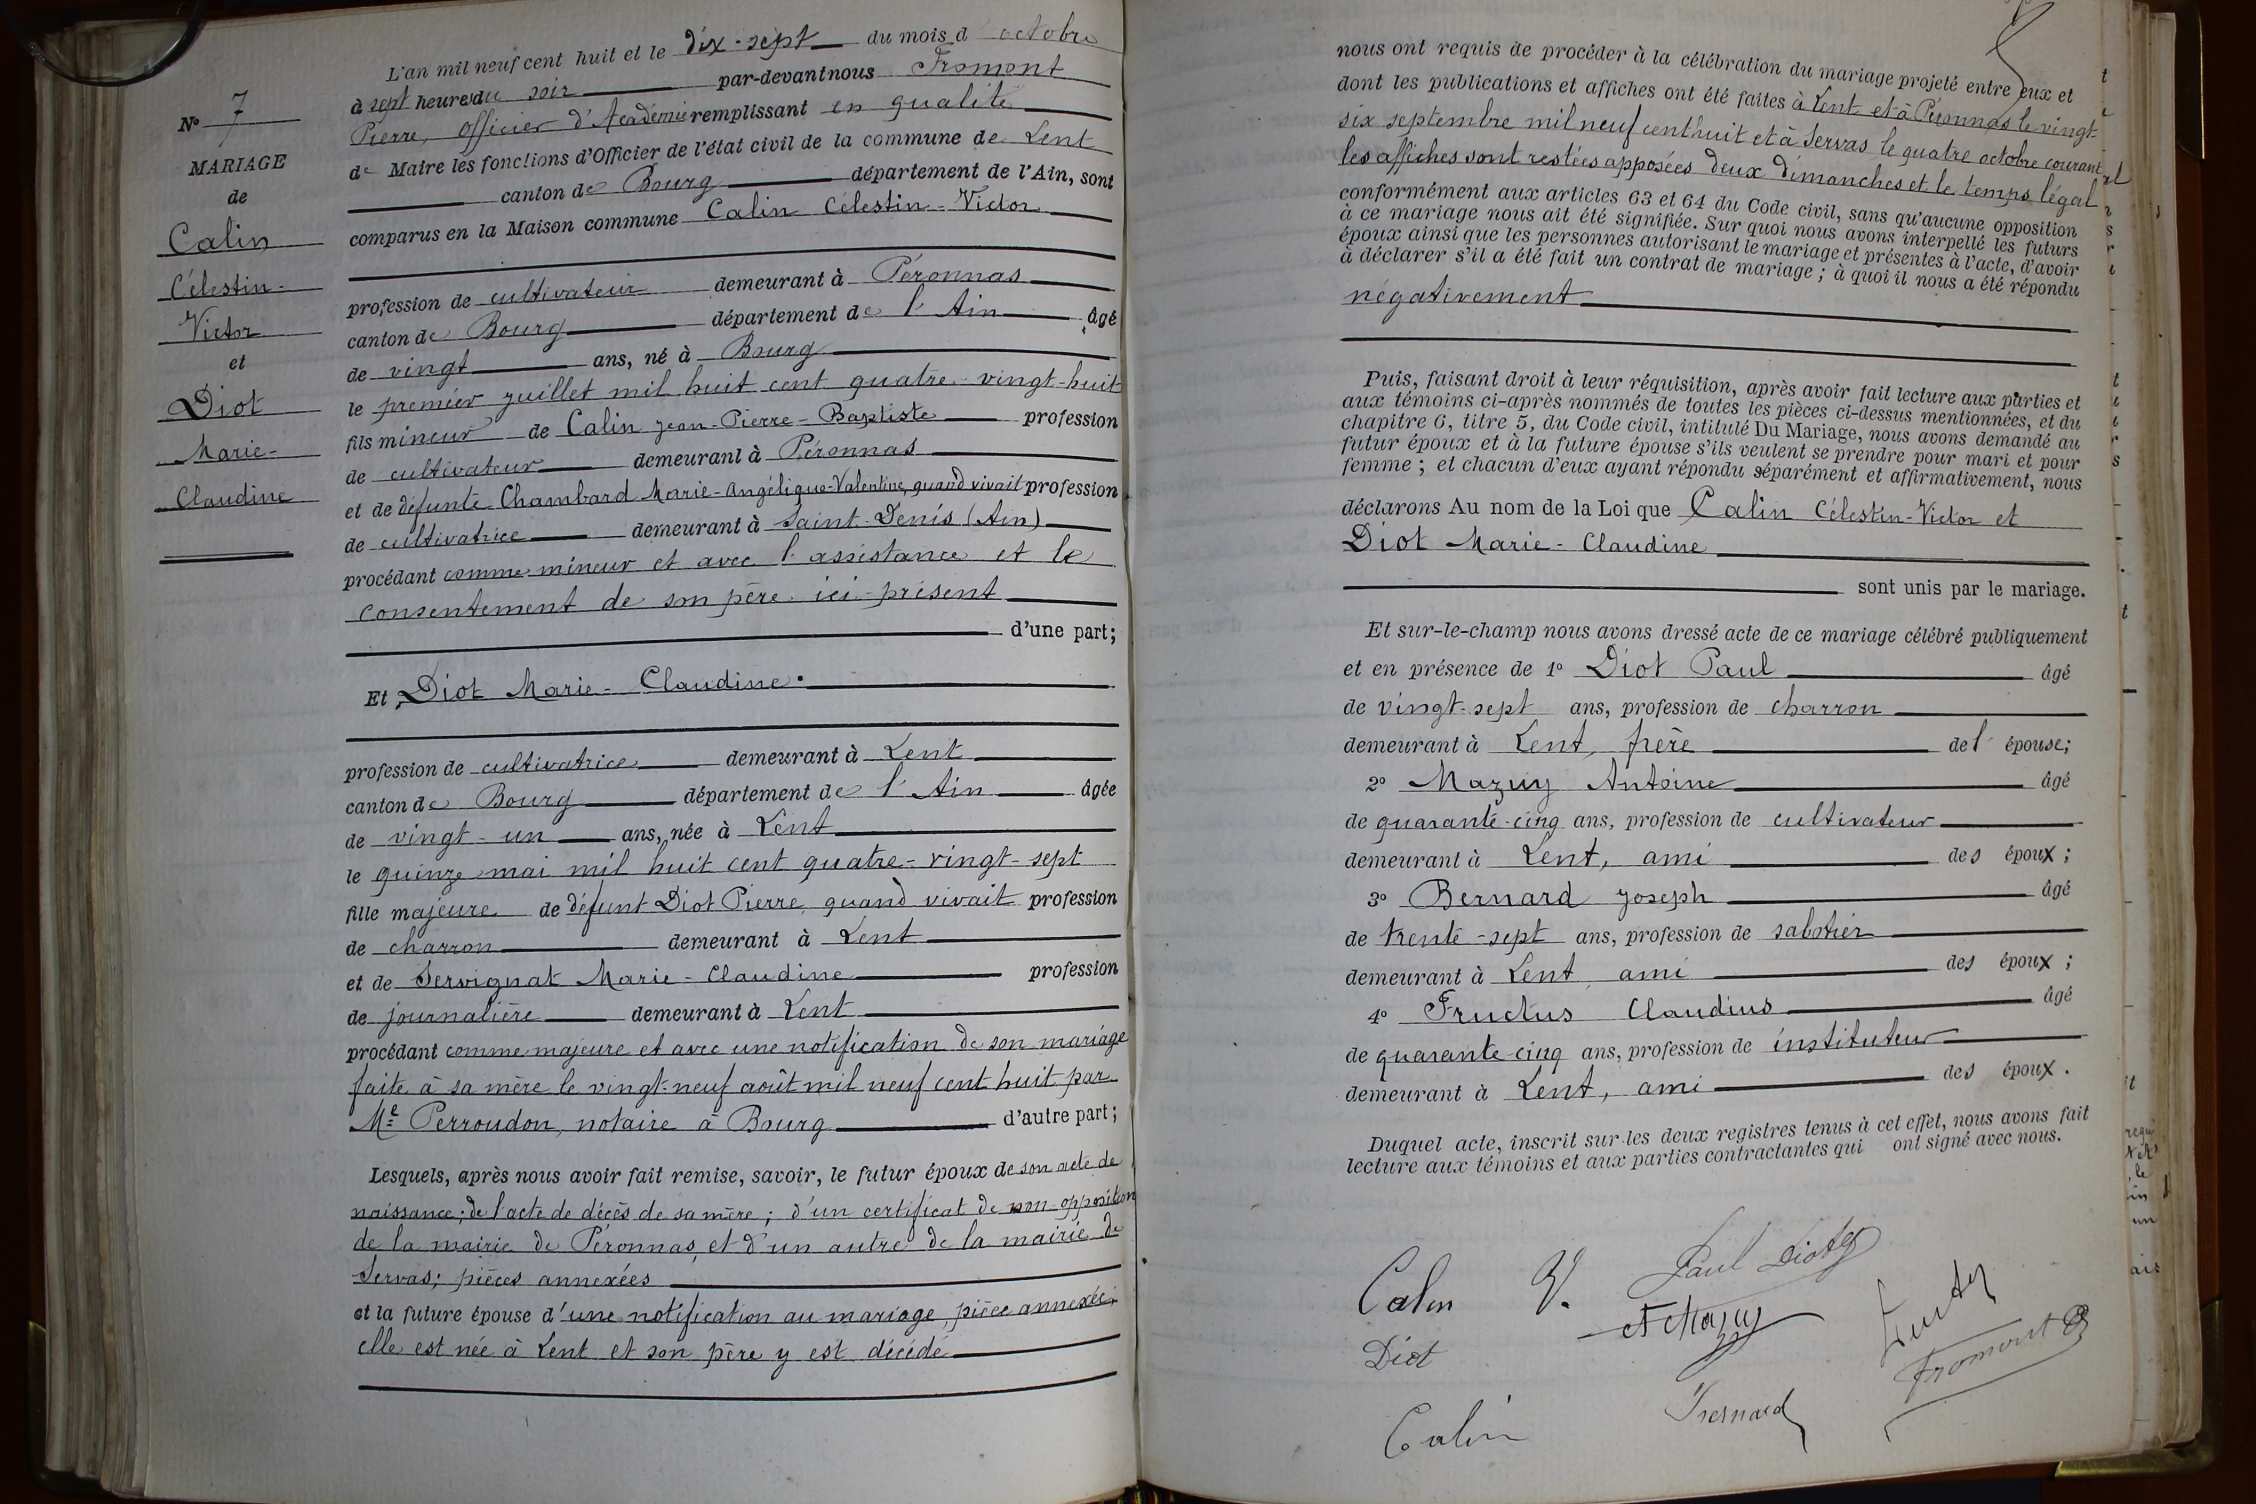 N° 7
MARIAGE
de
Calin
Célestin-
Victor
et
Diot
Marie-
Claudine
L'an mil neuf cent huit et le dix-sept du mois d octobre
à sept heures du soir par-devant nous Fromont
Pierre, Officier d'Académie remplissant en qualité
de Maire les fonctions d'Officier de l'état civil de la commune de Lent
canton de Bourg département de l'Ain, sont
comparus en la Maison commune Calin Célestin-Victor
profession de cultivateur demeurant à Péronnas
canton de Bourg département de l'Ain âgé
de vingt ans, né à Bourg
le premier juillet mil huit cent quatre-vingt-huit
fils mineur de Calin Jean-Pierre-Baptiste profession
de cultivateur demeurant à Péronnas
et de défunte Chambard Marie-Angélique-Valentine, quand vivait profession
de cultivatrice demeurant à Saint-Denis (Ain)
procédant comme mineur et avec l'assistance et le
consentement de son père ici présent
d'une part;
Et Diot Marie-Claudine.
profession de cultivatrice demeurant à Lent
canton de Bourg département de l'Ain âgée
de vingt-un ans, née à Lent
le quinze mai mil huit cent quatre-vingt-sept
fille majeure de défunt Diot Pierre, quand vivait profession
de charron demeurant à Lent
et de Servignat Marie-Claudine profession
de journalière demeurant à Lent
procédant comme majeure et avec une notification de son mariage
faite à sa mère le vingt-neuf août mil neuf cent huit par
Me Perroudon, notaire à Bourg d'autre part;
Lesquels, après nous avoir fait remise, savoir, le futur époux de son acte de
naissance; de l'acte de décès de sa mère; d'un certificat de non-opposition
de la mairie de Péronnas, et d'un autre de la mairie de
Servas; pièces annexées
et la future épouse d'une notification au mariage, pièce annexée;
elle est née à Lent et son père y est décédé
nous ont requis de procéder à la célébration du mariage projeté entre eux et
dont les publications et affiches ont été faites à Lent et à Péronnas le vingt-
six septembre mil neuf cent huit et à Servas le quatre octobre courant
les affiches sont restées apposées deux dimanches et le temps légal
conformément aux articles 63 et 64 du Code civil, sans qu'aucune opposition
à ce mariage nous ait été signifiée. Sur quoi nous avons interpellé les futurs
époux ainsi que les personnes autorisant le mariage et présentes à l'acte, d'avoir
à déclarer s'il a été fait un contrat de mariage; à quoi il nous a été répondu
négativement
Puis, faisant droit à leur réquisition, après avoir fait lecture aux parties et
aux témoins ci-après nommés de toutes les pièces ci-dessus mentionnées, et du
chapitre 6, titre 5, du Code civil, intitulé Du Mariage, nous avons demandé au
futur époux et à la future épouse s'ils veulent se prendre pour mari et pour
femme; et chacun d'eux ayant répondu séparément et affirmativement, nous
déclarons Au nom de la Loi que Calin Célestin-Victor et
Diot Marie-Claudine
sont unis par le mariage.
Et sur-le-champ nous avons dressé acte de ce mariage célébré publiquement
et en présence de 1° Diot Paul âgé
de vingt-sept ans, profession de charron
demeurant à Lent, frère de l'épouse;
2° Mazuy Antoine âgé
de quarante-cinq ans, profession de cultivateur
demeurant à Lent, ami des époux;
3° Bernard Joseph âgé
de trente-sept ans, profession de sabotier
demeurant à Lent, ami des époux;
4° Fructus Claudius âgé
de quarante-cinq ans, profession de instituteur
demeurant à Lent, ami des époux.
Duquel acte, inscrit sur les deux registres tenus à cet effet, nous avons fait
lecture aux témoins et aux parties contractantes qui ont signé avec nous.
Calin V. Paul Diot
A Mazuy
Diot
Fromont P
Calin Bernard